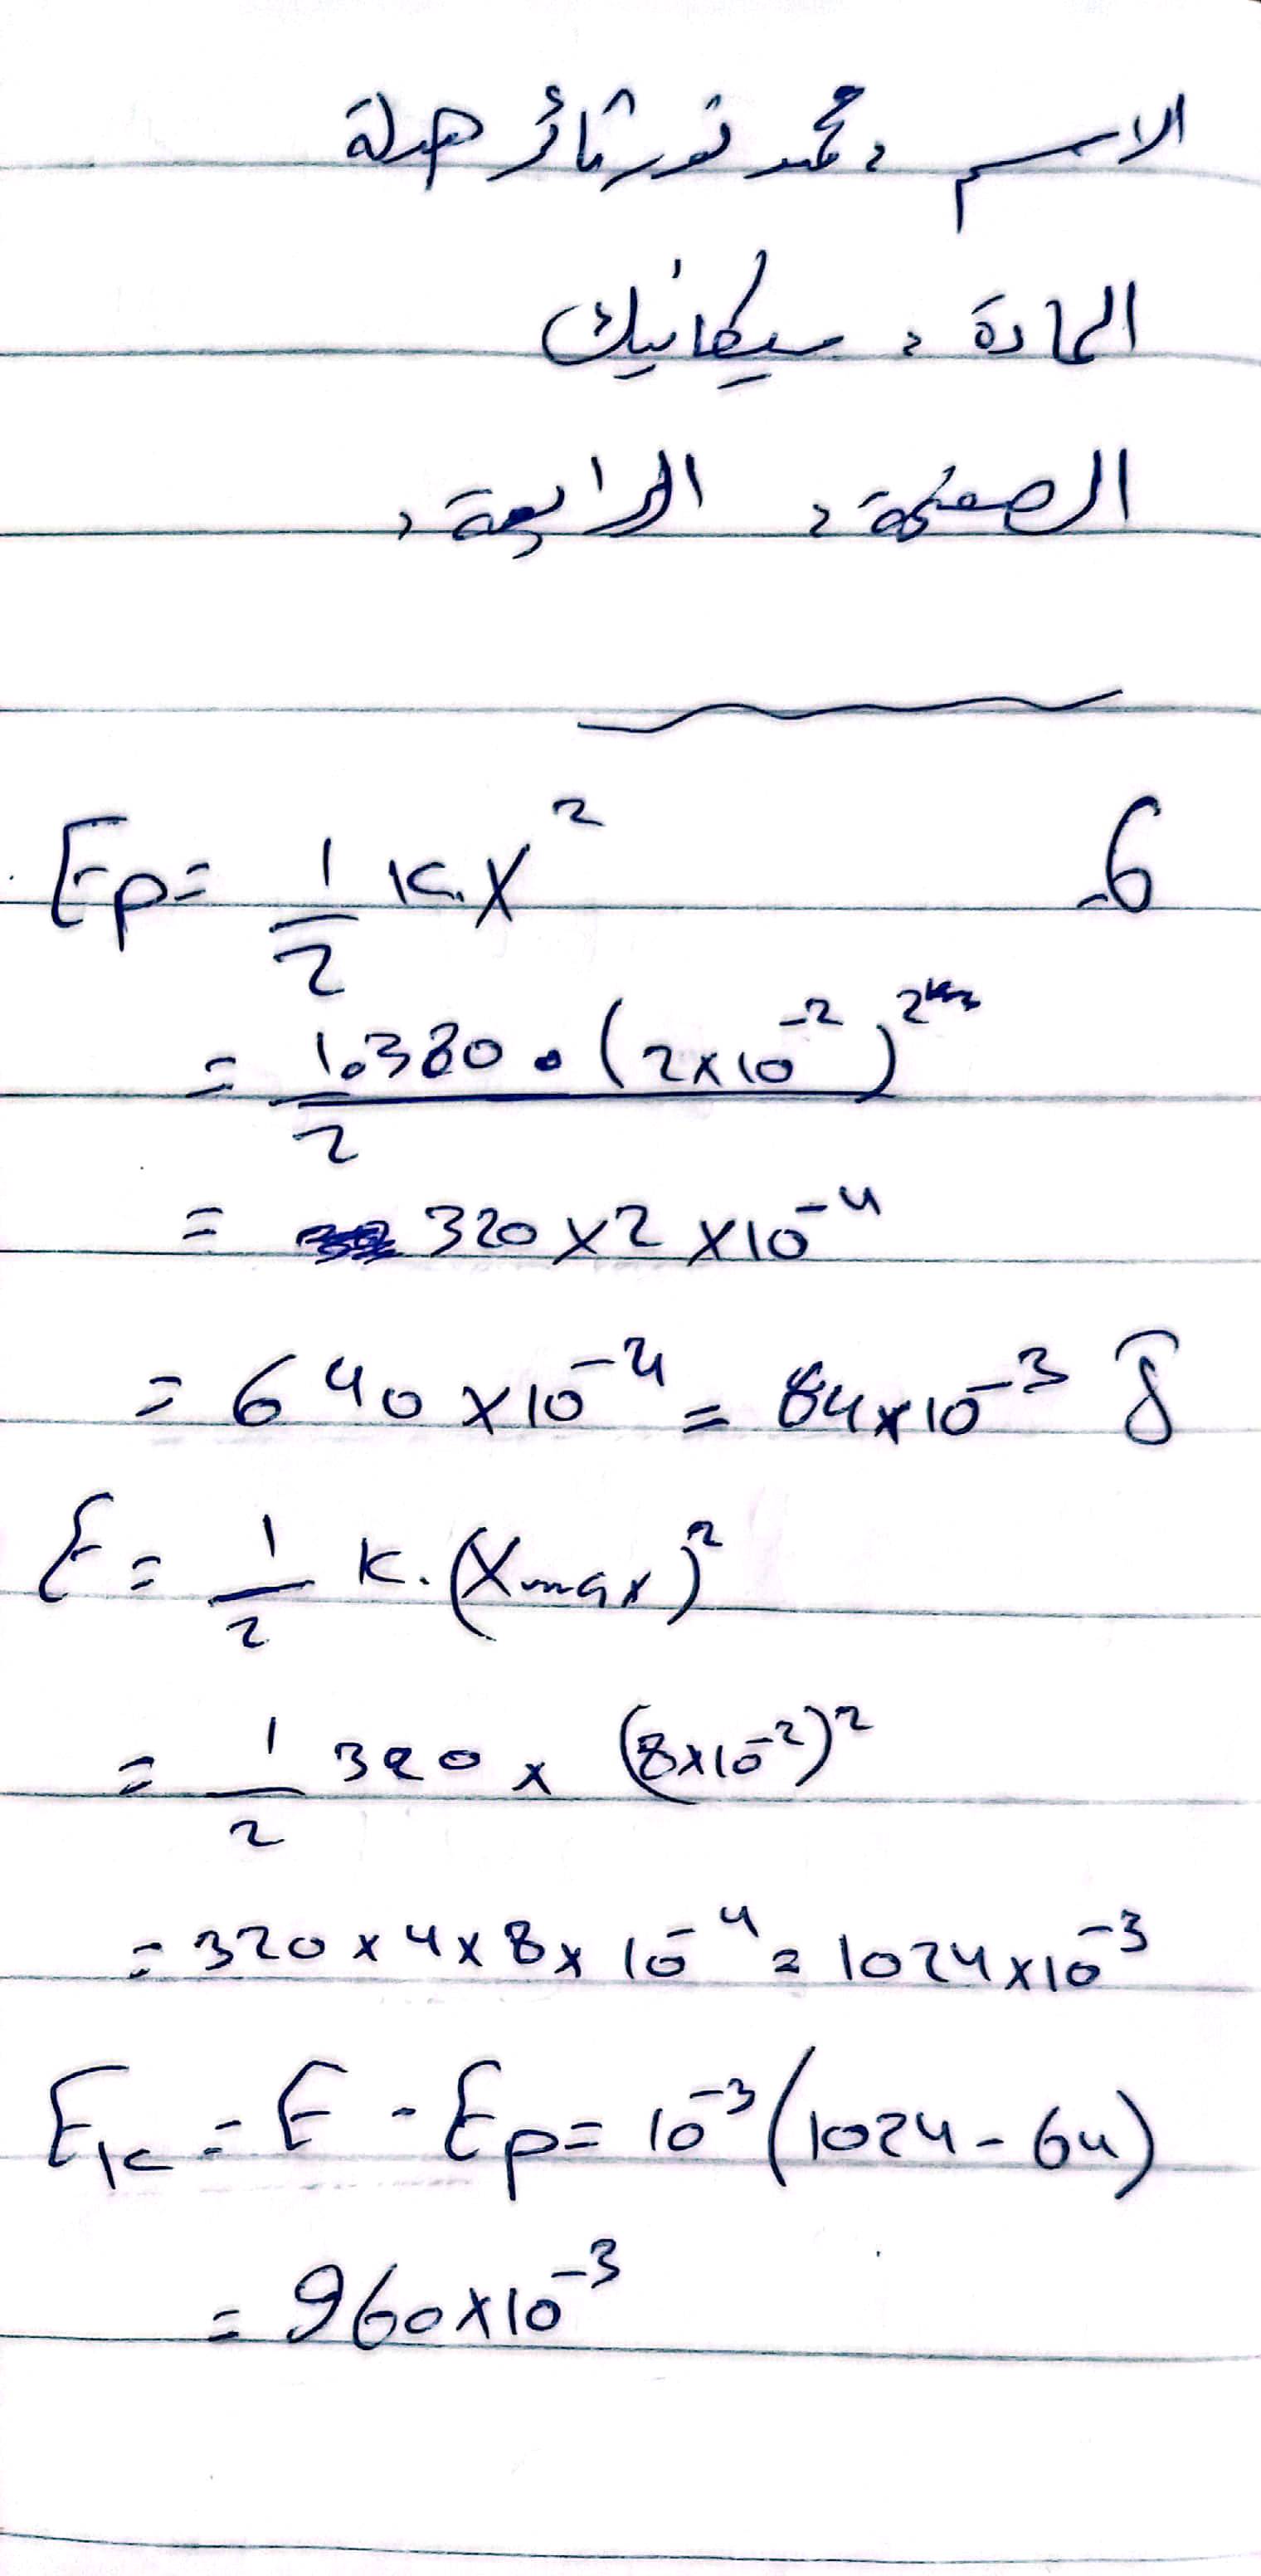 الاسم : محمد نور ثائر هدلة
المادة : ميكانيك
الصفحة : الرابعة .
6-
Ep = 1/2 K.X²
= 1.380 • (2×10⁻²)² / 2
= 320 × 2 × 10⁻⁴
= 640 × 10⁻⁴ = 84×10⁻³ J
E = 1/2 K.(Xmax)²
= 1/2 320 × (8×10⁻²)²
= 320 × 4 × 8 × 10⁻⁴ = 1024×10⁻³
EK = E - Ep = 10⁻³ (1024 - 64)
= 960×10⁻³